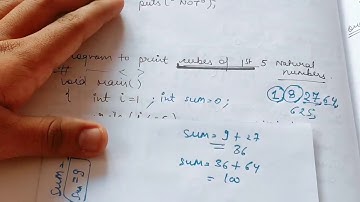 puts("NOT");
rogram to print cubes of 1st 5 natural
numbers.
void main()
{ int i=1 ; int sum=0;
1 8 27 64
625
sum = 9 + 27
= 36
sum = 36 + 64
= 100
sum=
sum=9